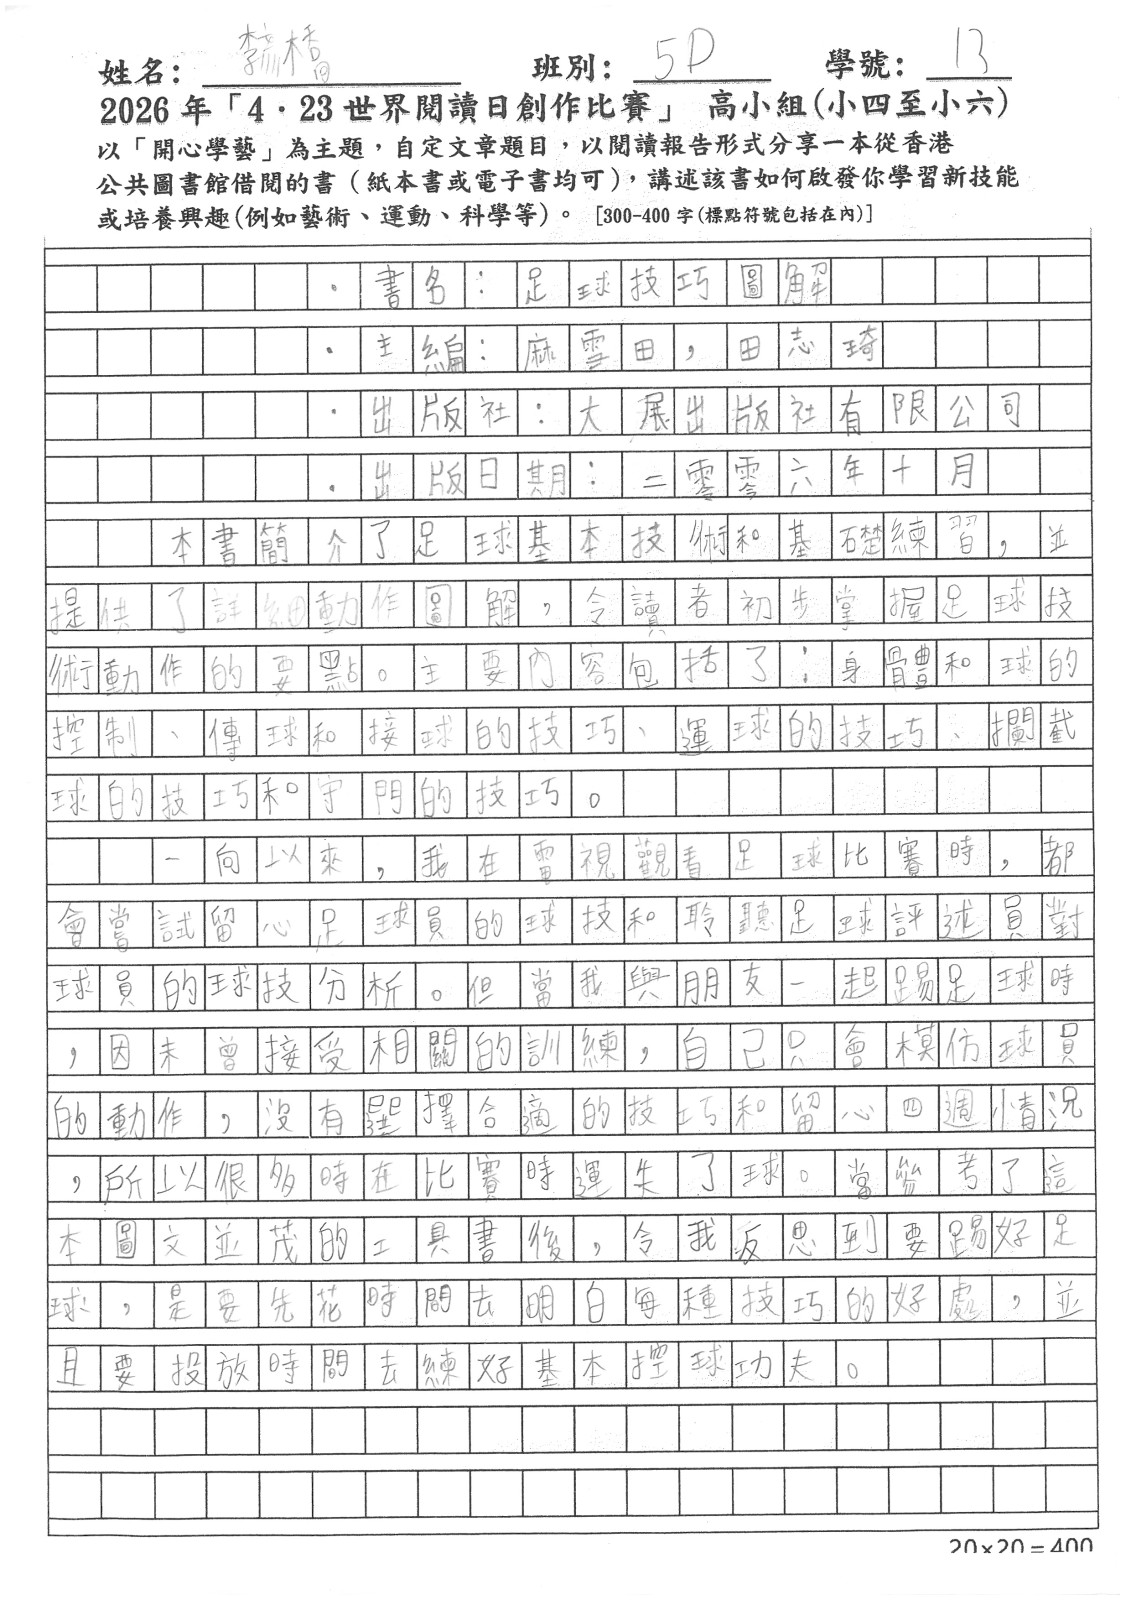 姓名： 班別：5D 學號：13
2026 年「4．23 世界閱讀日創作比賽」 高小組(小四至小六)
以「開心學藝」為主題，自定文章題目，以閱讀報告形式分享一本從香港
公共圖書館借閱的書（紙本書或電子書均可），講述該書如何啟發你學習新技能
或培養興趣(例如藝術、運動、科學等)。 [300-400 字(標點符號包括在內)]
．書名：足球技巧圖解
．主編：麻雪田，田志琦
．出版社：大展出版社有限公司
．出版日期：二零零六年十月
本書簡介了足球基本技術和基礎練習，並
提供了詳細動作圖解，令讀者初步掌握足球技
術動作的要點。主要內容包括了：身體和球的
控制、傳球和接球的技巧、運球的技巧、攔截
球的技巧和守門的技巧。
一向以來，我在電視觀看足球比賽時，都
會嘗試留心足球員的球技和聆聽足球評述員對
球員的球技分析。但當我與朋友一起踢足球時
，因未曾接受相關的訓練，自己只會模仿球員
的動作，沒有選擇合適的技巧和留心四週情況
，所以很多時在比賽時運失了球。當參考了這
本圖文並茂的工具書後，令我反思到要踢好足
球，是要先花時間去明白每種技巧的好處，並
且要投放時間去練好基本控球功夫。
20×20=400